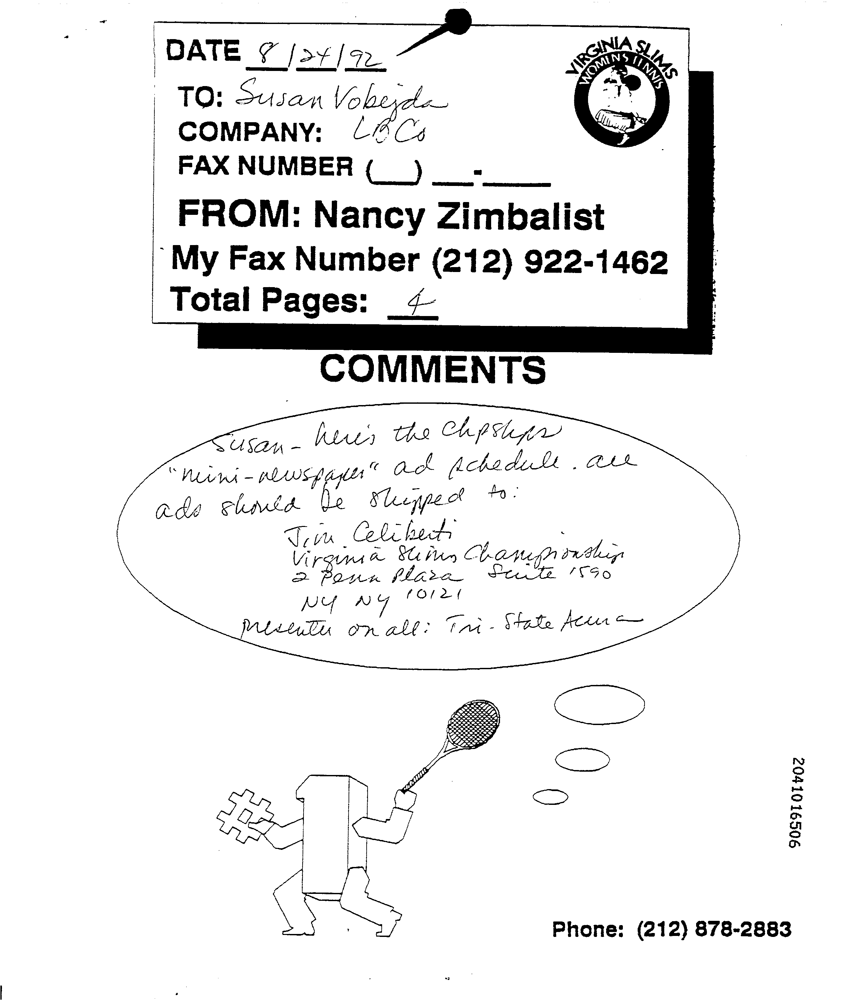 DATE 8/24/92
VIRGINIA SLIMS
WOMEN'S TENNIS
TO: Susan Vobejda
COMPANY: LBCo
FAX NUMBER (__) __-____
FROM: Nancy Zimbalist
My Fax Number (212) 922-1462
Total Pages: 4
COMMENTS
Susan - here's the Chpships
"mini-newspaper" ad schedule. all
ads should be shipped to:
Jim Celiberti
Virginia Slims Championships
2 Penn Plaza Suite 1590
NY NY 10121
presenter on all: Tri-State Acura
2041016506
Phone: (212) 878-2883